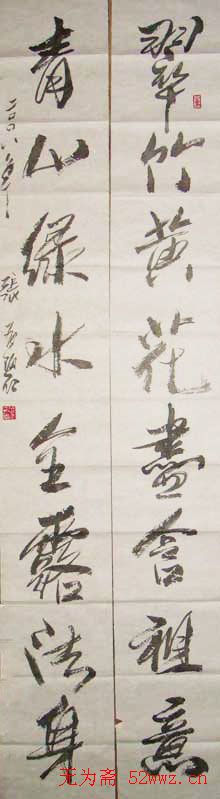 翠竹黄花盡含雅意
青山綠水全露法身
二〇〇八年
張
无为斋 52wwz.cn